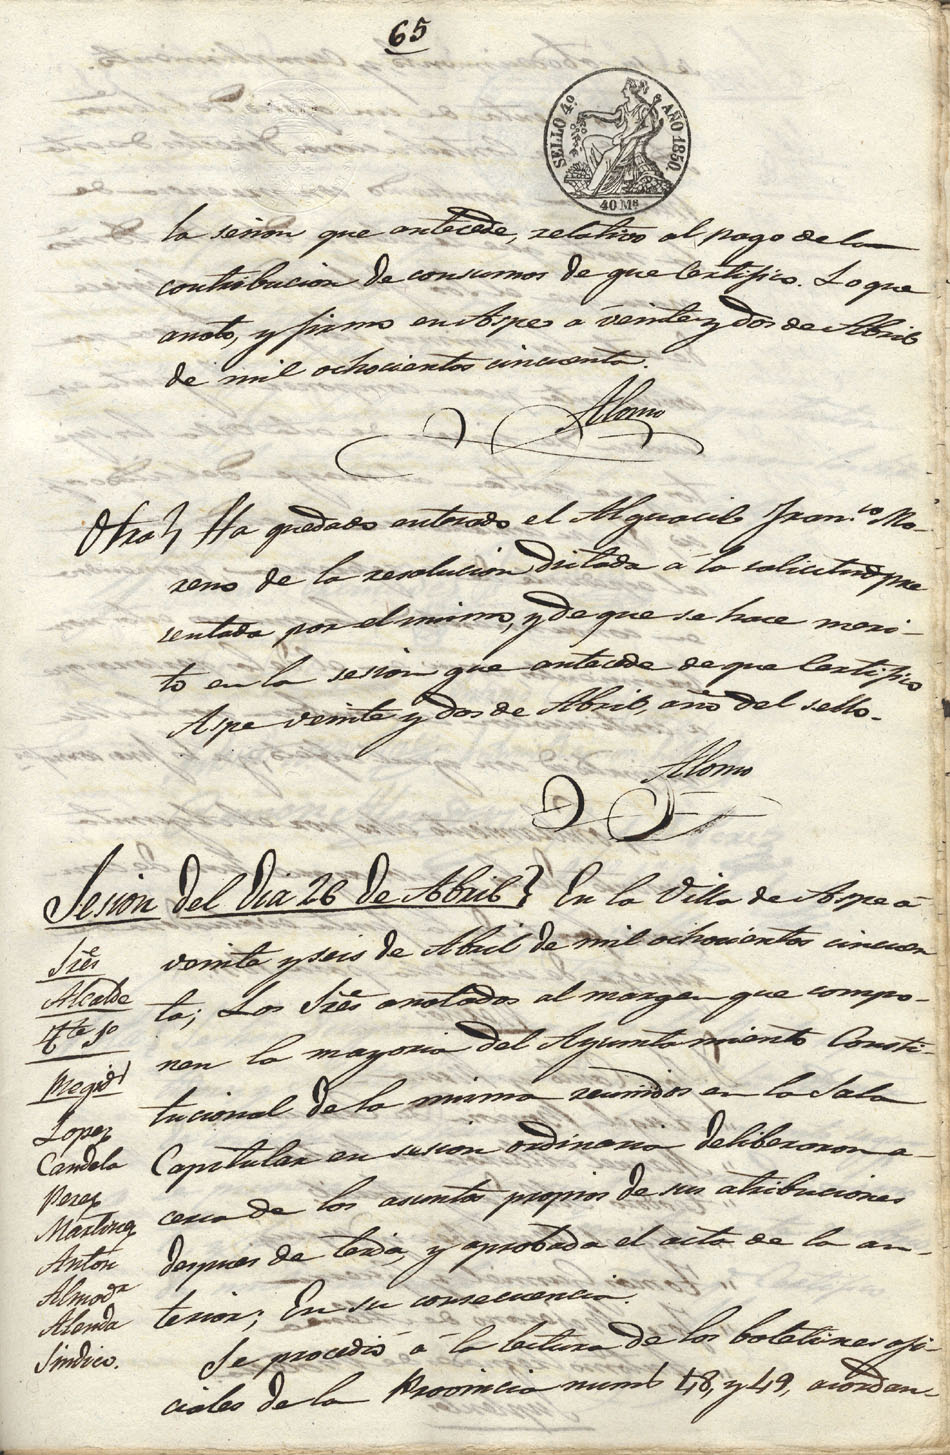 65
SELLO 4º AÑO 1850.
40 Mˢ
la sesion que antecede, relativo al pago de la
contribucion de consumos de que Certifico. Lo que
anoto, y firmo en Aspe a veinte y dos de Abril
de mil ochocientos cincuenta.
Alomo
Otra} Ha quedado enterado el Alguacil Fran.ᶜᵒ Mo-
reno de la resolucion dictada á la solicitud pre
sentada por el mismo, y de que se hace meri-
to en la sesion que antecede de que Certifico
Aspe veinte y dos de Abril, año del sello.
Alomo
Sesion del dia 26 de Abril} En la Villa de Aspe á
veinte y seis de Abril de mil ochocientos cincuen
ta; Los Sres anotados al margen que compo-
nen la mayoria del Ayuntamiento Consti-
tucional de la misma reunidos en la Sala
Capitular en sesion ordinaria deliberaron a-
cerca de los asuntos propios de sus atribuciones
despues de leida, y aprobada el acta de la an-
terior; En su consecuencia.
Se procedió á la lectura de los boletines ofi-
ciales de la Provincia num.ˢ 48, y 49, acordan-
Sres
Alcalde
Tte 1º
Regid.ˢ
Lopez
Candela
Perez
Martinez
Anton
Almodr
Alenda
Sindico.